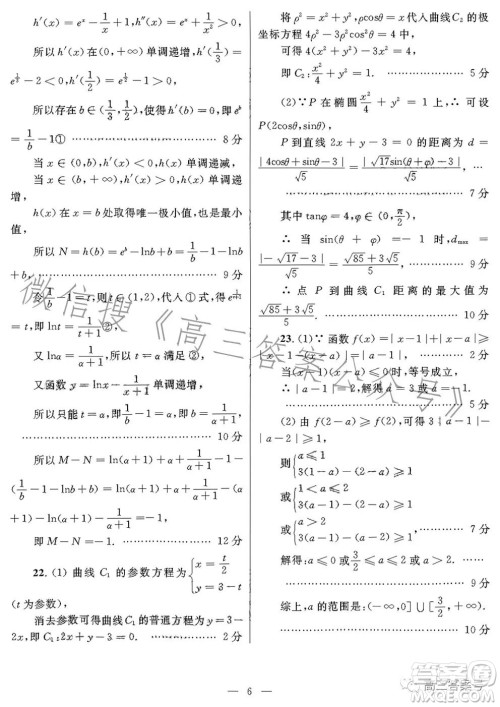 h′(x)=e^x-1/x+1, h′(x)=e^x+1/x²>0,
所以 h′(x)在(0,+∞)单调递增, h′(1/3)=
e^(1/3)-2<0, h′(1/2)=e^(1/2)-1>0,
所以存在 b∈(1/3,1/2), h′(b)=0, 即 e^b
=1/b-1① 8 分
当 x∈(0,b), h′(x)<0, h(x)单调递减,
当 x∈(b,+∞), h′(x)>0, h(x)单调递
增,
h(x)在 x=b 处取得唯一极小值, 也是最
小值,
所以 N=h(b)=e^b-lnb+b=1/b-1-lnb
+b. 9 分
令 1/b-1=t, 则 t∈(1,2), 代入①式, 得
t+lnt=1/(t+1)
又 lnα=1/(α+1), 所以 t=α 满足②,
又函数 y=lnx-1/(x+1)单调递增,
所以只能 t=α, 即 α=1/b-1, b=1/(α+1).
10 分
所以 M-N=ln(α+1)+α+1/(α+1)-
(1/b-1-lnb+b)=ln(α+1)+α+1/(α+1)-
(α+ln(α+1)+1/(α+1))=-1.
即 M-N=-1. 12 分
22. (1) 曲线 C₁ 的参数方程为{x=t/2 y=3-t
(t为参数),
消去参数可得曲线 C₁ 的普通方程为 y=3-
2x, 即 C₁:2x+y-3=0. 2 分
将 ρ²=x²+y², ρcosθ=x 代入曲线 C₂ 的极
坐标方程 4ρ²-3ρ²cos²θ=4 中,
可得 4(x²+y²)-3x²=4,
即 C₂:x²/4+y²=1. 5 分
(2)∵ P 在椭圆 x²/4+y²=1 上, ∴ 可设
P(2cosθ,sinθ),
P 到直线 2x+y-3=0 的距离为 d=
|4cosθ+sinθ-3|/√5=|√17sin(θ+φ)-3|/√5.
7 分
其中 tanφ=4, φ∈(0,π/2),
∴ 当 sin(θ+φ)=-1 时, d_max=
|-√17-3|/√5=(√85+3√5)/5 9 分
∴ 点 P 到曲线 C₁ 距离的最大值为
(√85+3√5)/5. 10 分
23. (1)∵ 函数 f(x)=|x-1|+|x-a|≥
|x-1-(x-a)|=|a-1|,
当(x-1)(x-a)≤0 时, 等号成立,
∴ |a-1|=2, 解得 a=3 或 a=-1. 5 分
(2) 由 f(a)≥f(2), 可得 3|a-1|-|a-2|≥1,
则{a≤1 3(1-a)-(2-a)≥1
或{1<a≤2 3(a-1)-(2-a)≥1
或{a>2 3(a-1)-(a-2)≥1 7 分
解得: a≤0 或 3/2≤a≤2 或 a>2.
9 分
综上, a 的范围是: (-∞,0]∪[3/2,+∞).
10 分
— 6 —
微信搜《高三答案公众号》
答案圈
高三答案号